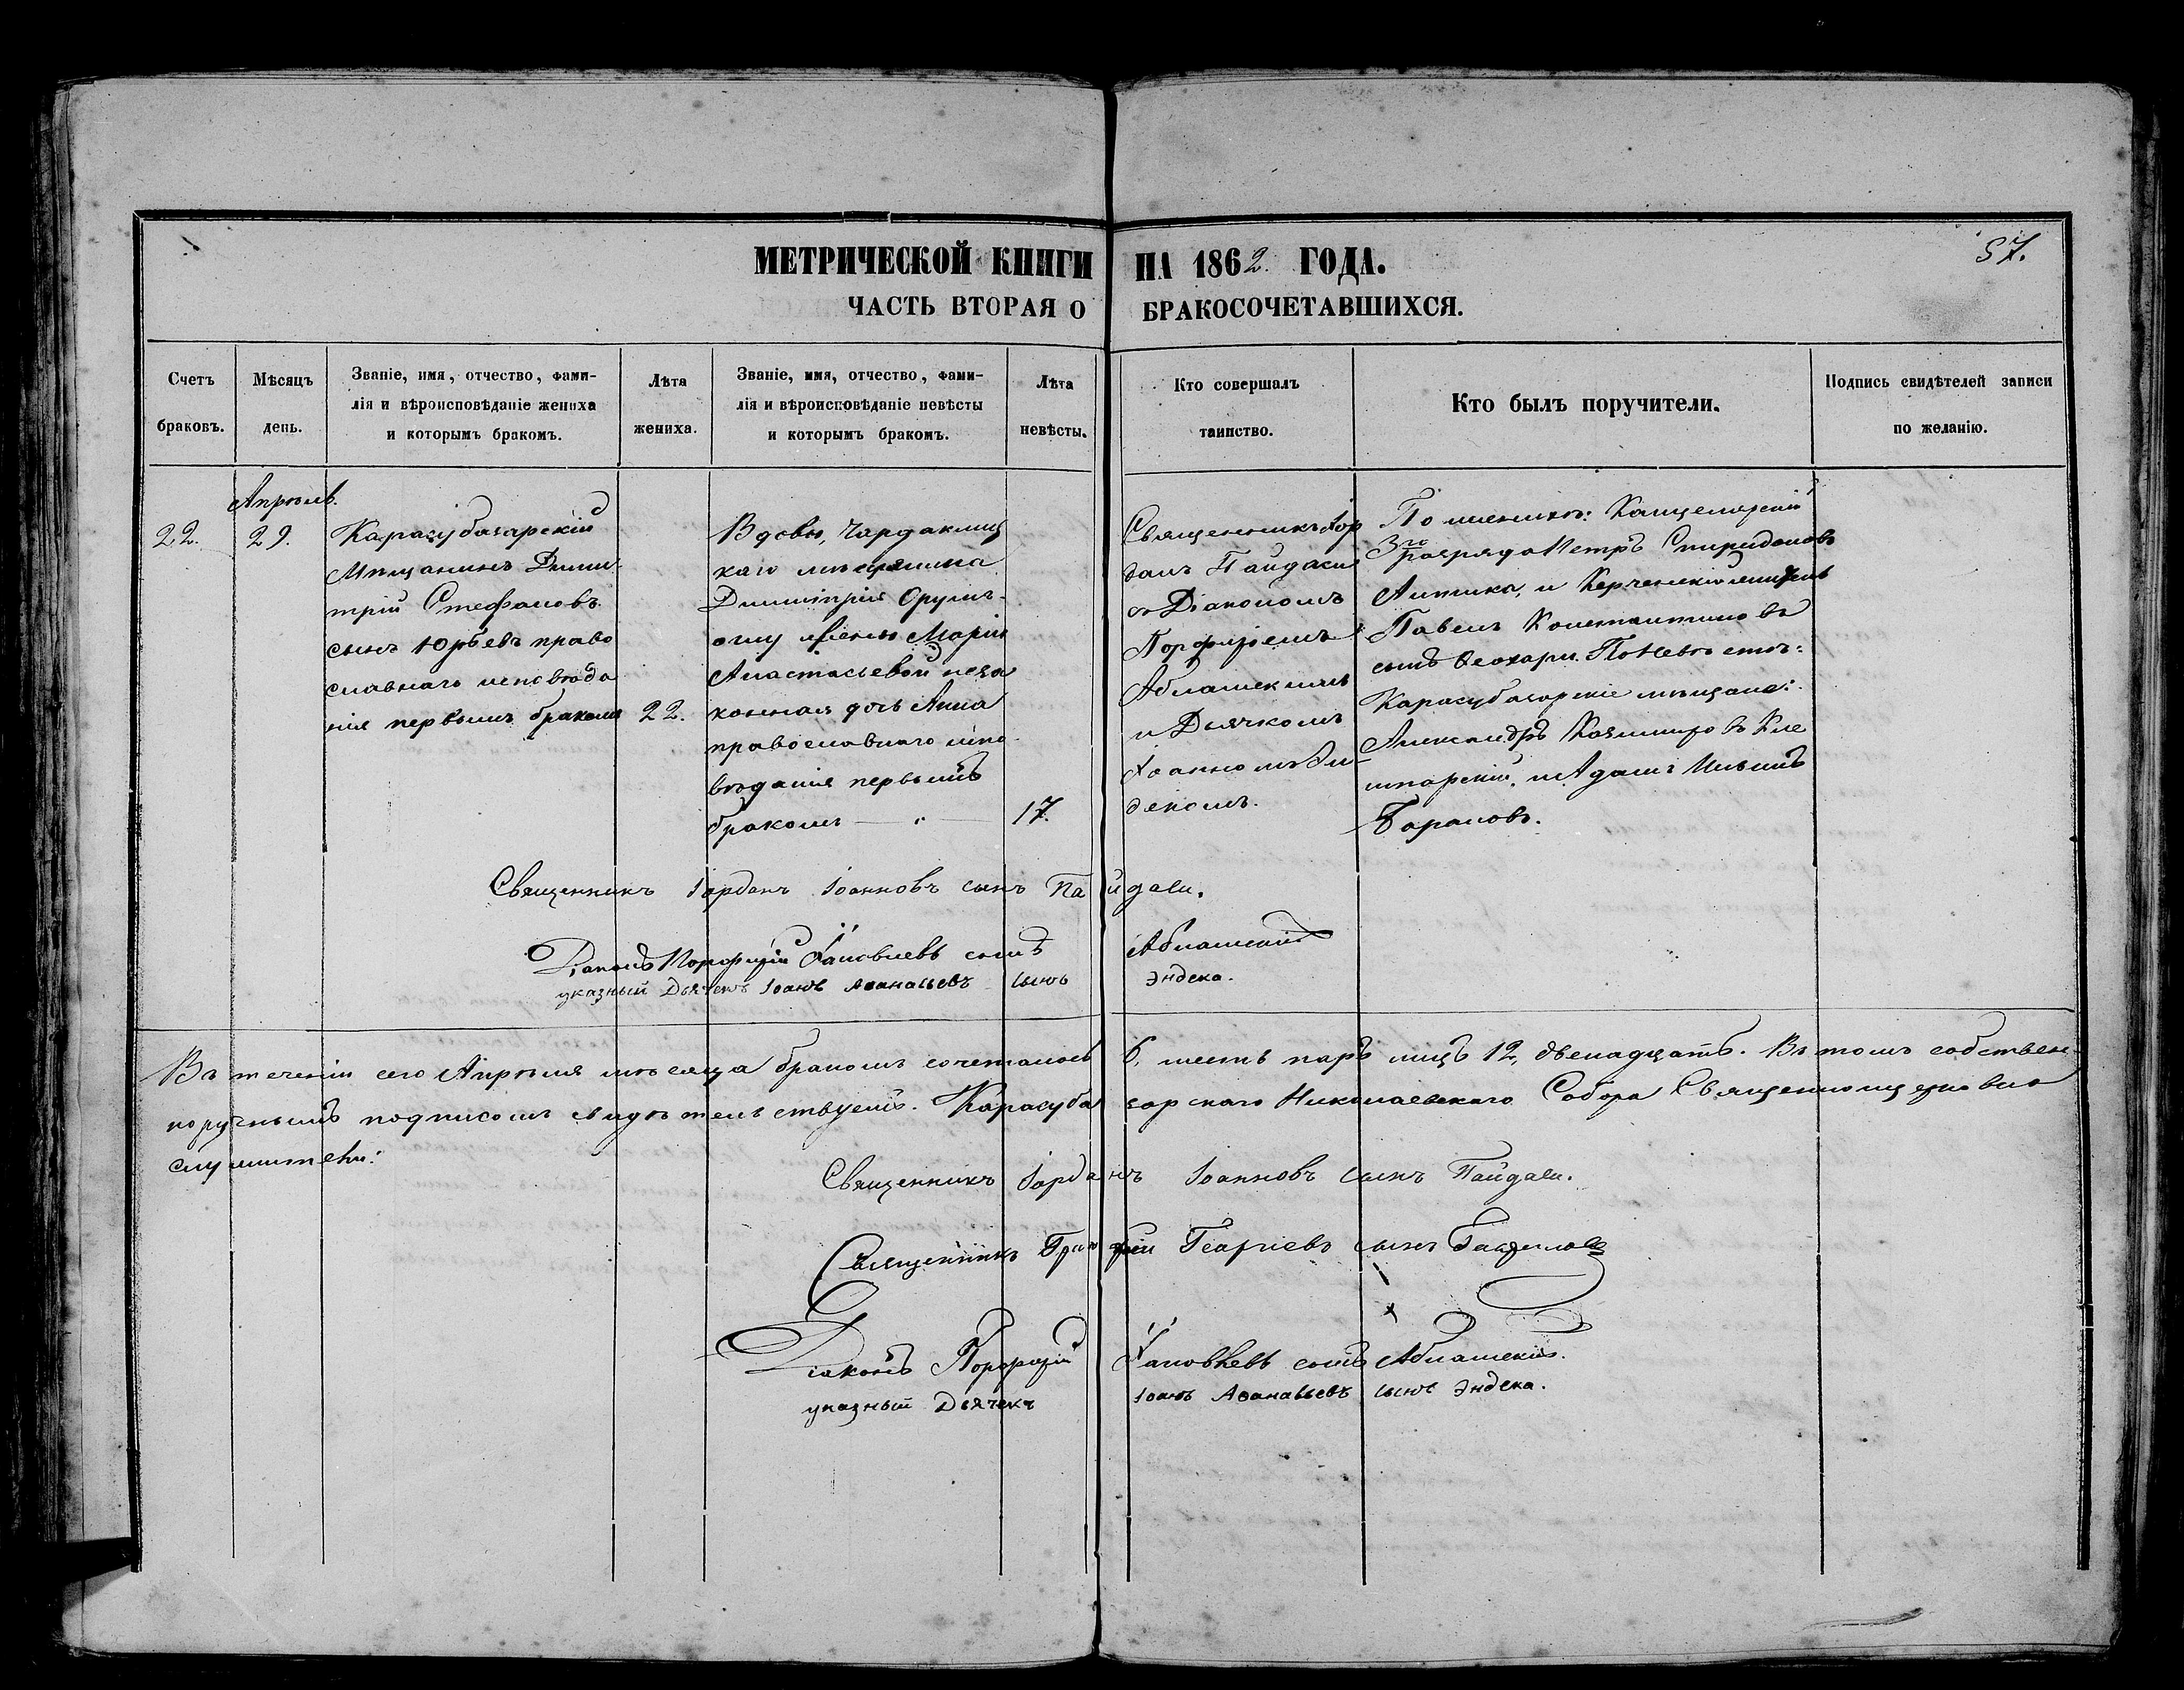 МЕТРИЧЕСКОЙ КНИГИ НА 1862 ГОДА.
57.
ЧАСТЬ ВТОРАЯ О БРАКОСОЧЕТАВШИХСЯ.
Счетъ
браковъ.
Мѣсяцъ
день.
Званіе, имя, отчество, фами-
лія и вѣроисповѣданіе жениха
и которымъ бракомъ.
Лѣта
жениха.
Званіе, имя, отчество, фами-
лія и вѣроисповѣданіе невѣсты
и которымъ бракомъ.
Лѣта
невѣсты.
Кто совершалъ
таинство.
Кто былъ поручители.
Подпись свидѣтелей записи
по желанію.
22.
Апрѣль.
29.
Карасубазарскій
Мѣщанинъ Дими-
трій Стефановъ
сынъ Юрьевъ право
славнаго исповѣда
нія первымъ бракомъ
22.
Вдовы,
каго мѣщанина
Димитрія
Маріи
Анастасьевой неза
конная дочь Анна
православнаго испо
вѣданія первымъ
бракомъ — „ —
17.
Священникъ Іор
данъ Пайдаси
съ Діакономъ
Порфиріемъ
и Дьячкомъ
Іоанномъ Эн-
декомъ.
По женихѣ: Канцелярскій
3го разряда Петръ Спиридоновъ
и Керченскій
Павелъ Константиновъ
сынъ Ѳеохари. По невѣстѣ:
Карасубазарскіе мѣщане:
Александръ Казимировъ
и Адамъ Ильинъ
Барановъ.
Священникъ Іорданъ Іоанновъ сынъ Пайдаси.
Діаконъ Порфирій Іаковлевъ сынъ
указный Дьячекъ Іоанъ Аѳанасьевъ сынъ Эндека.
Въ теченіи сего Апрѣля мѣсяца бракомъ сочеталось 6, шесть паръ лицъ 12, двенадцать. Въ томъ собствен-
норучнымъ подписомъ свидѣтельствуемъ. Карасубазарскаго Николаевскаго Собора Священноцерковно
служители:
Священникъ Іорданъ Іоанновъ сынъ Пайдаси.
Священникъ Георгіевъ сынъ
Діаконъ Порфирій Іаковлевъ сынъ
указный Дьячекъ Іоанъ Аѳанасьевъ сынъ Эндека.